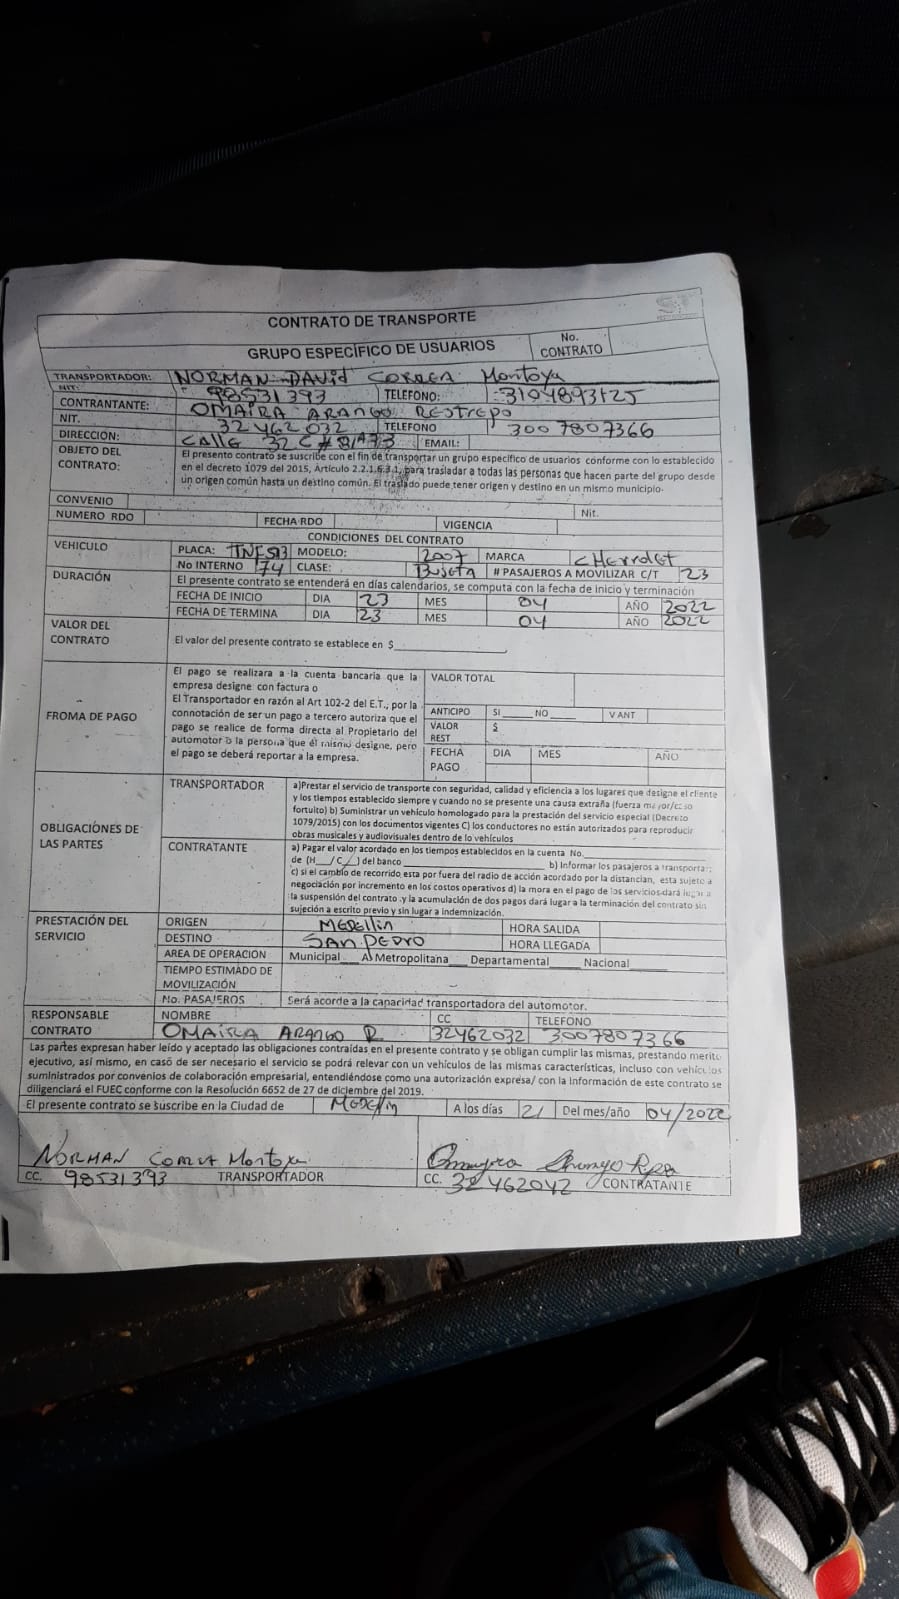 CONTRATO DE TRANSPORTE
GRUPO ESPECÍFICO DE USUARIOS No. CONTRATO
TRANSPORTADOR: NORMAN DAVID CORREA Montoya
NIT: 98531393 TELEFONO: 3104893125
CONTRANTANTE: OMAIRA ARANGO RESTREPO
NIT. 32462032 TELEFONO 3007807366
DIRECCION: CAllE 32 C # 81A73 EMAIL:
OBJETO DEL CONTRATO: El presente contrato se suscribe con el fin de transportar un grupo especifico de usuarios conforme con lo establecido
en el decreto 1079 del 2015, Artículo 2.2.1.6.3.1, para trasladar a todas las personas que hacen parte del grupo desde
un origen común hasta un destino común. El traslado puede tener origen y destino en un mismo municipio.
CONVENIO Nit.
NUMERO RDO FECHA RDO VIGENCIA
CONDICIONES DEL CONTRATO
VEHICULO PLACA: MODELO: 2007 MARCA CHevrolet
No INTERNO 74 CLASE: BUSETA # PASAJEROS A MOVILIZAR C/T 23
DURACIÓN El presente contrato se entenderá en días calendarios, se computa con la fecha de inicio y terminación
FECHA DE INICIO DIA 23 MES 04 AÑO 2022
FECHA DE TERMINA DIA 23 MES 04 AÑO 2022
VALOR DEL CONTRATO El valor del presente contrato se establece en $
FROMA DE PAGO
El pago se realizara a la cuenta bancaria que la
empresa designe con factura o
El Transportador en razón al Art 102-2 del E.T., por la
connotación de ser un pago a tercero autoriza que el
pago se realice de forma directa al Propietario del
automotor o la persona que él mismo designe, pero
el pago se deberá reportar a la empresa.
VALOR TOTAL
ANTICIPO SI NO V ANT
VALOR REST $
FECHA PAGO DIA MES AÑO
OBLIGACIONES DE LAS PARTES
TRANSPORTADOR a)Prestar el servicio de transporte con seguridad, calidad y eficiencia a los lugares que designe el cliente
y los tiempos establecido siempre y cuando no se presente una causa extraña (fuerza mayor/caso
fortuito) b) Suministrar un vehículo homologado para la prestación del servicio especial (Decreto
1079/2015) con los documentos vigentes C) los conductores no están autorizados para reproducir
obras musicales y audiovisuales dentro de lo vehículos
CONTRATANTE a) Pagar el valor acordado en los tiempos establecidos en la cuenta No.
de (H__/C_/) del banco b) Informar los pasajeros a transportar;
c) si el cambio de recorrido esta por fuera del radio de acción acordado por la distancian, esta sujeto a
negociación por incremento en los costos operativos d) la mora en el pago de los servicios dará lugar a
la suspensión del contrato y la acumulación de dos pagos dará lugar a la terminación del contrato sin
sujeción a escrito previo y sin lugar a indemnización.
PRESTACIÓN DEL SERVICIO
ORIGEN MEDEllin HORA SALIDA
DESTINO SAN PEDRO HORA LLEGADA
AREA DE OPERACIÓN Municipal A Metropolitana Departamental Nacional
TIEMPO ESTIMADO DE MOVILIZACIÓN
No. PASAJEROS Será acorde a la capacidad transportadora del automotor.
RESPONSABLE CONTRATO NOMBRE CC TELEFONO
OMAIRA ARANGO R 32462032 3007807366
Las partes expresan haber leído y aceptado las obligaciones contraídas en el presente contrato y se obligan cumplir las mismas, prestando merito
ejecutivo, así mismo, en casó de ser necesario el servicio se podrá relevar con un vehículos de las mismas características, incluso con vehículos
suministrados por convenios de colaboración empresarial, entendiéndose como una autorización expresa/ con la información de este contrato se
diligenciará el FUEC conforme con la Resolución 6652 de 27 de diciembre del 2019.
El presente contrato se suscribe en la Ciudad de MEDEllin A los días 21 Del mes/año 04/2022
NORMAN CORREA Montoya
CC. 98531393 TRANSPORTADOR
CC. 32462042 CONTRATANTE